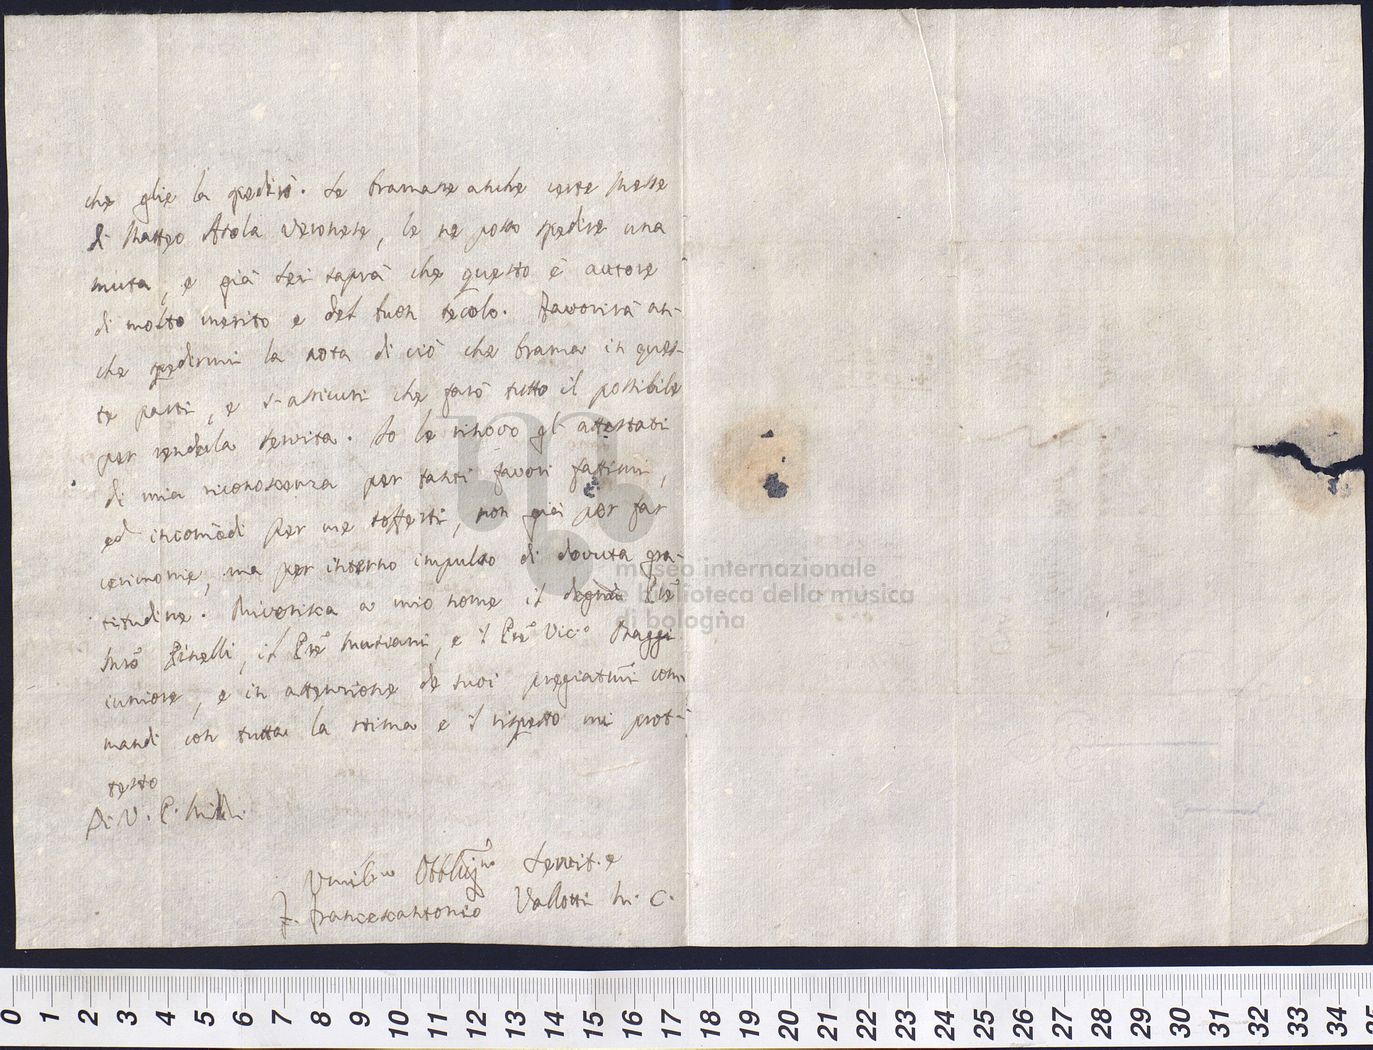 che glie la spedirò. Se bramasse anche certe Messe
di Matteo Asola Veronese, le ne posso spedire una
muta, e già Lei saprà che questo è autore
di molto merito e del buon secolo. Favorirà an-
che spedirmi la nota di ciò che brama in ques-
te parti, e s'assicuri che farò tutto il possibile
per renderla servita. Io le rinovo gli attestati
di mia riconoscenza per tanti favori fattimi,
ed incomodi per me sofferti, non già per far
cerimonie, ma per interno impulso di dovuta gra-
titudine. Riverisca a mio nome il Pre
Mro, il Pre, e il Pre Vic.o
iuniore, e in attenzione de suoi pregiatmi com
mandi con tutta la stima e il rispetto mi prot-
testo
Di V. P. M.
Umilmo Obbligmo Servit.e
F. Francescantonio Vallotti M. C.
museo internazionale
e biblioteca della musica
di bologna
0 1 2 3 4 5 6 7 8 9 10 11 12 13 14 15 16 17 18 19 20 21 22 23 24 25 26 27 28 29 30 31 32 33 34 35